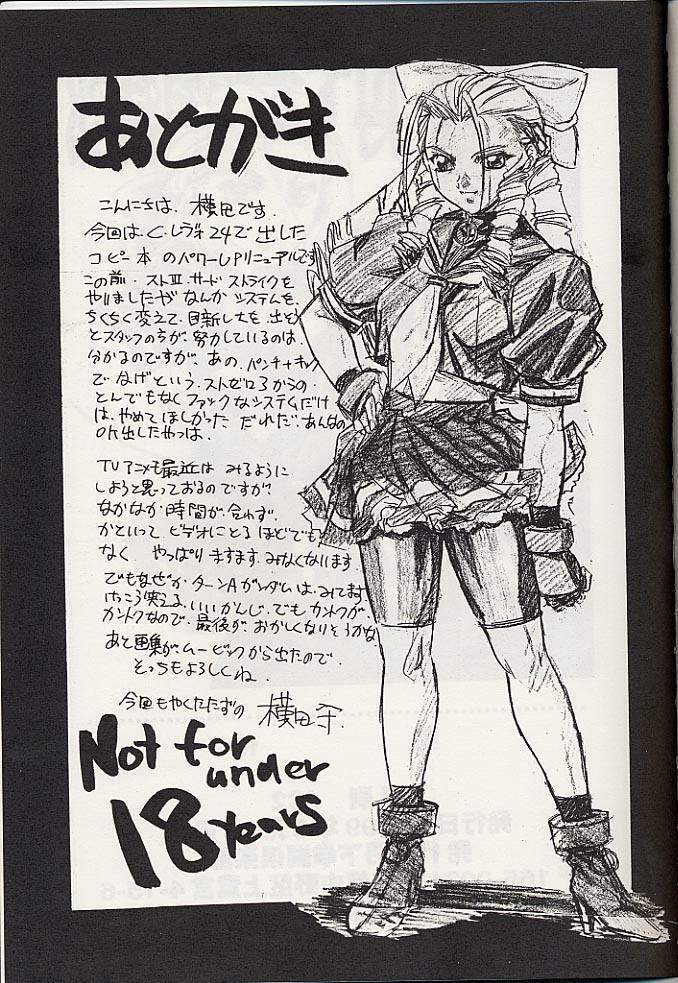 あとがき
こんにちは、横田です。
今回は、C・レヴォ24で出した
コピー本のパワーUPリニューアルです
この前、ストⅢ・サードストライクを
やりましたがなんかシステムを、
ちくちく変えて、目新しさを、出そう
とスタッフの方が、努力しているのは
分かるのですが、あの、パンチ+キック
でなげという、ストゼロ3からの、
とんでもなくファックなシステムだけ
は、やめてほしかった だれだ、あんなの
OK出したやつは、
TVアニメも最近は みるように
しようと思っておるのですが、
なかなか時間が合わず、
かといって ビデオにとるほどでも
なく、やっぱり ますます、みなくなります
でもなぜか ターンAガンダムは、みてます
けっこう笑える、いいかんじ、でも カントクが
カントクなので、最後が、おかしくなりそうかな
あと画集が、ムービックから出たので、
そっちもよろしくね
今回もやくたたずの 横田守
Not for
under
18 years